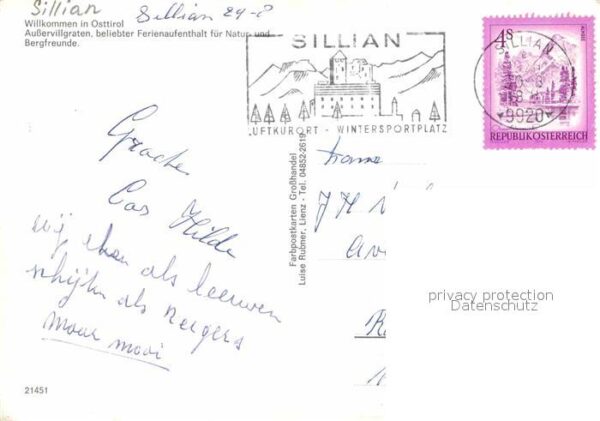 Sillian
Sillian 29-8
Willkommen in Osttirol
Außervillgraten, beliebter Ferienaufenthalt für Natur- und
Bergfreunde.
SILLIAN
LUFTKURORT - WINTERSPORTPLATZ
SILLIAN
9920
4S
REPUBLIK ÖSTERREICH
Groeten
Cas Hilda
wij eten als leeuwen
schijten als reigers
maar mooi
Farbpostkarten Großhandel
Luise Rubner, Lienz - Tel. 04852-2619
privacy protection
Datenschutz
21451